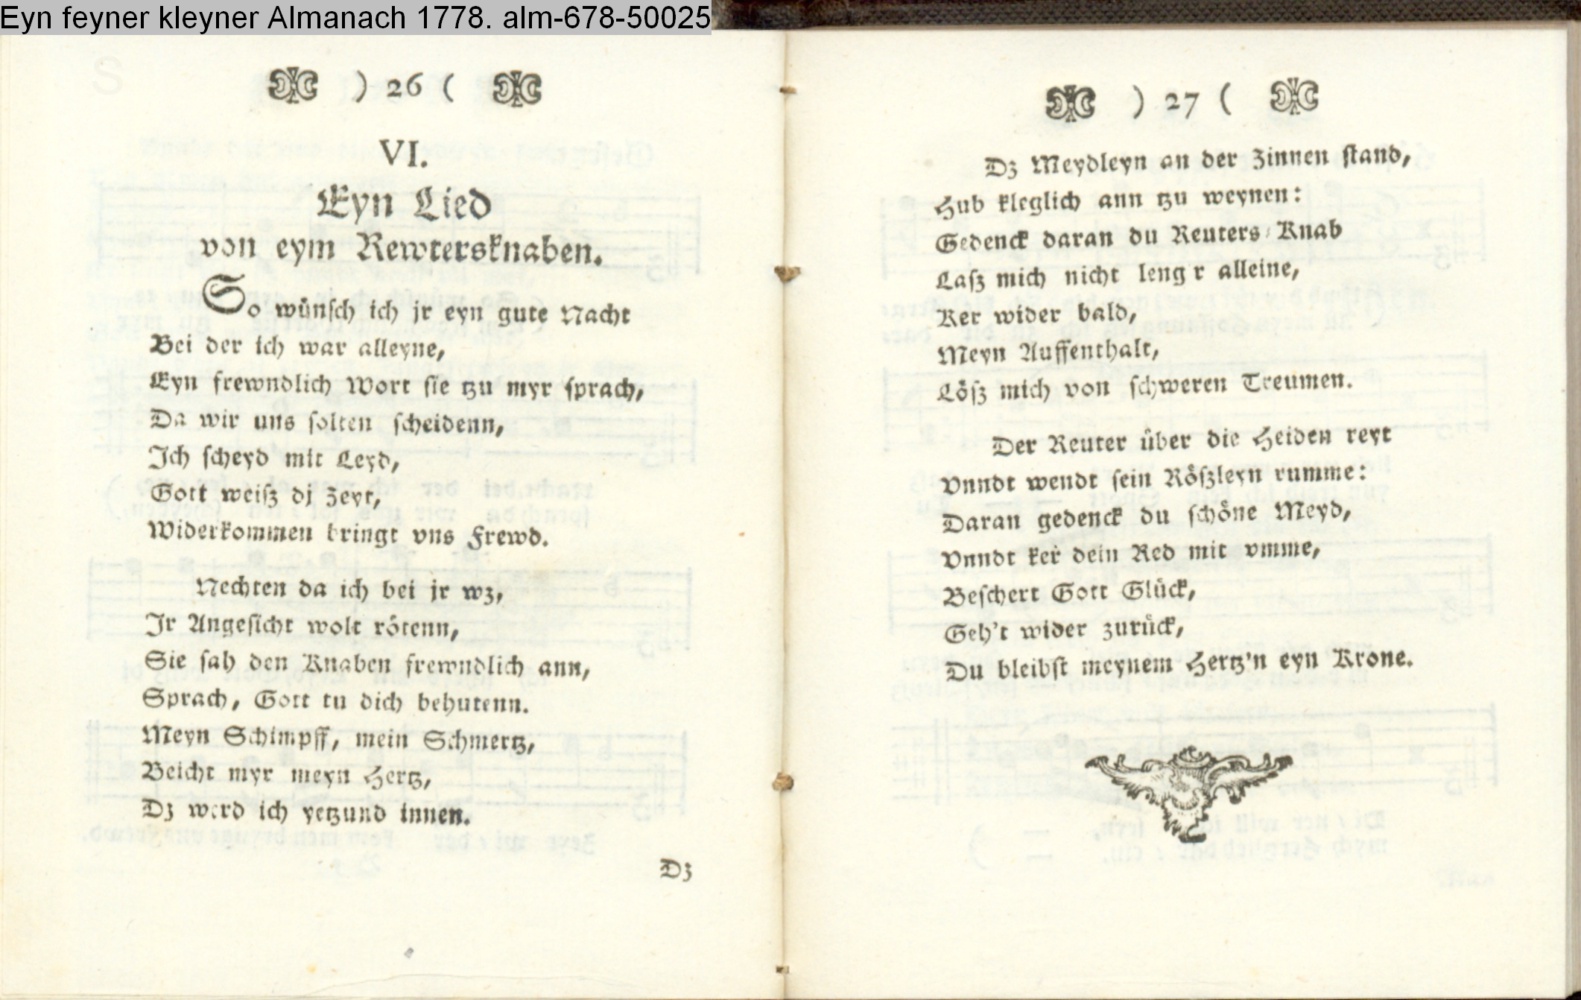 Eyn feyner kleyner Almanach 1778. alm-678-50025
) 26 (
VI.
Eyn Lied
von eym Rewtersknaben.
So wünsch ich jr eyn gute Nacht
Bei der ich war alleyne,
Eyn frewndlich Wort sie tzu myr sprach,
Da wir uns solten scheidenn,
Ich scheyd mit Leyd,
Gott weisz di Zeyt,
Widerkommen bringt vns Frewd.
Nechten da ich bei jr wz,
Jr Angesicht wolt rötenn,
Sie sah den Knaben frewndlich ann,
Sprach, Gott tu dich behutenn.
Meyn Schimpff, mein Schmertz,
Beicht myr meyn Hertz,
Dz werd ich yetzund innen.
Dz
) 27 (
Dz Meydleyn an der Zinnen stand,
Hub kleglich ann tzu weynen:
Gedenck daran du Reuters-Knab
Lasz mich nicht leng r alleine,
Ker wider bald,
Meyn Auffenthalt,
Lösz mich von schweren Treumen.
Der Reuter über die Heiden reyt
Vnndt wendt sein Röszleyn rumme:
Daran gedenck du schöne Meyd,
Vnndt ker dein Red mit vmme,
Beschert Gott Glück,
Geh't wider zurück,
Du bleibst meynem Hertz'n eyn Krone.